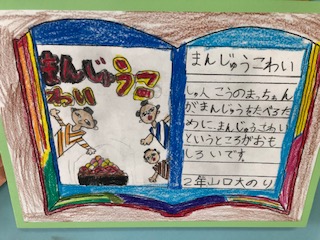 まんじゅうこ
わい
まんじゅうこわい
しゅ人こうのま、ちゃん
がまんじゅうをたべるた
めに、まんじゅうこわい
というところがおも
しろいです。
2年山口大のり